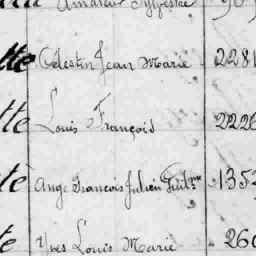 Sylvestre
tte Célestin Jean Marie 2281
tte Louis François 2226
te Ange François Julien 1352
te Yves Louis Marie 260